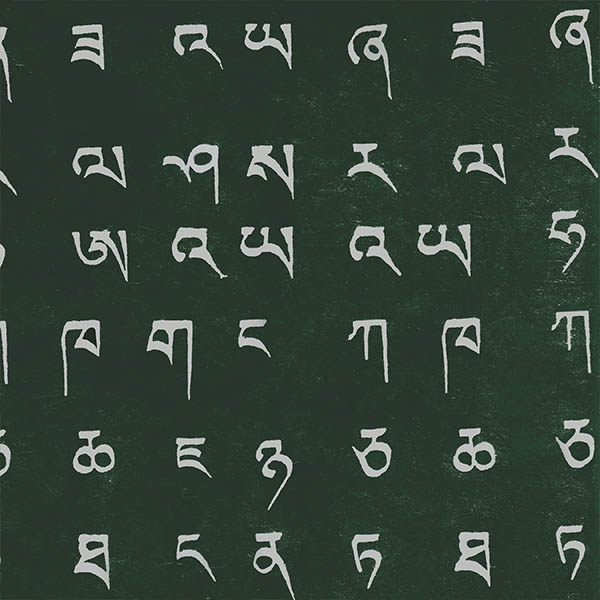 ཟ འ ཡ ཞ ཟ ཞ
ལ ཤ ས ར ལ ར
ཨ འ ཡ འ ཡ ཧ
ཁ ག ང ཀ ཁ ཀ
ཆ ཇ ཉ ཅ ཆ ཅ
ཐ ད ན ཏ ཐ ཏ